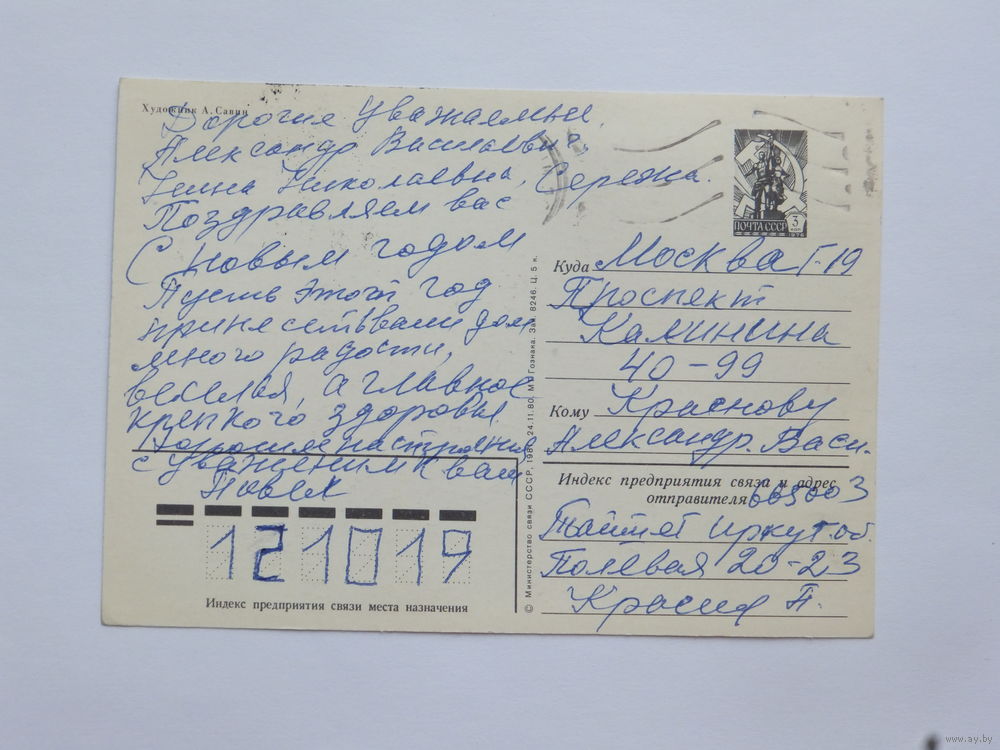 Художник А. Савин
Дорогие уважаемые
Александр Васильевич,
Нина Николаевна, Сережа.
Поздравляем вас
С новым годом
Пусть этот год
принесёт в ваш дом
много радости,
веселья, а главное
крепкого здоровья
Хорошего настроения
с уважением к вам
Павел
121019
Индекс предприятия связи места назначения
© Министерство связи СССР, 1980. 24.11.80. МТ Гознака. Зак. 8246. Ц. 5 к.
ПОЧТА СССР
3
КОП
1976
Куда Москва Г-19
Проспект
Калинина
40-99
Кому Краснову
Александр. Васи.
Индекс предприятия связи и адрес
отправителя 665003
Тайшет Иркут. об.
Полевая 20-23
П.
www.ay.by